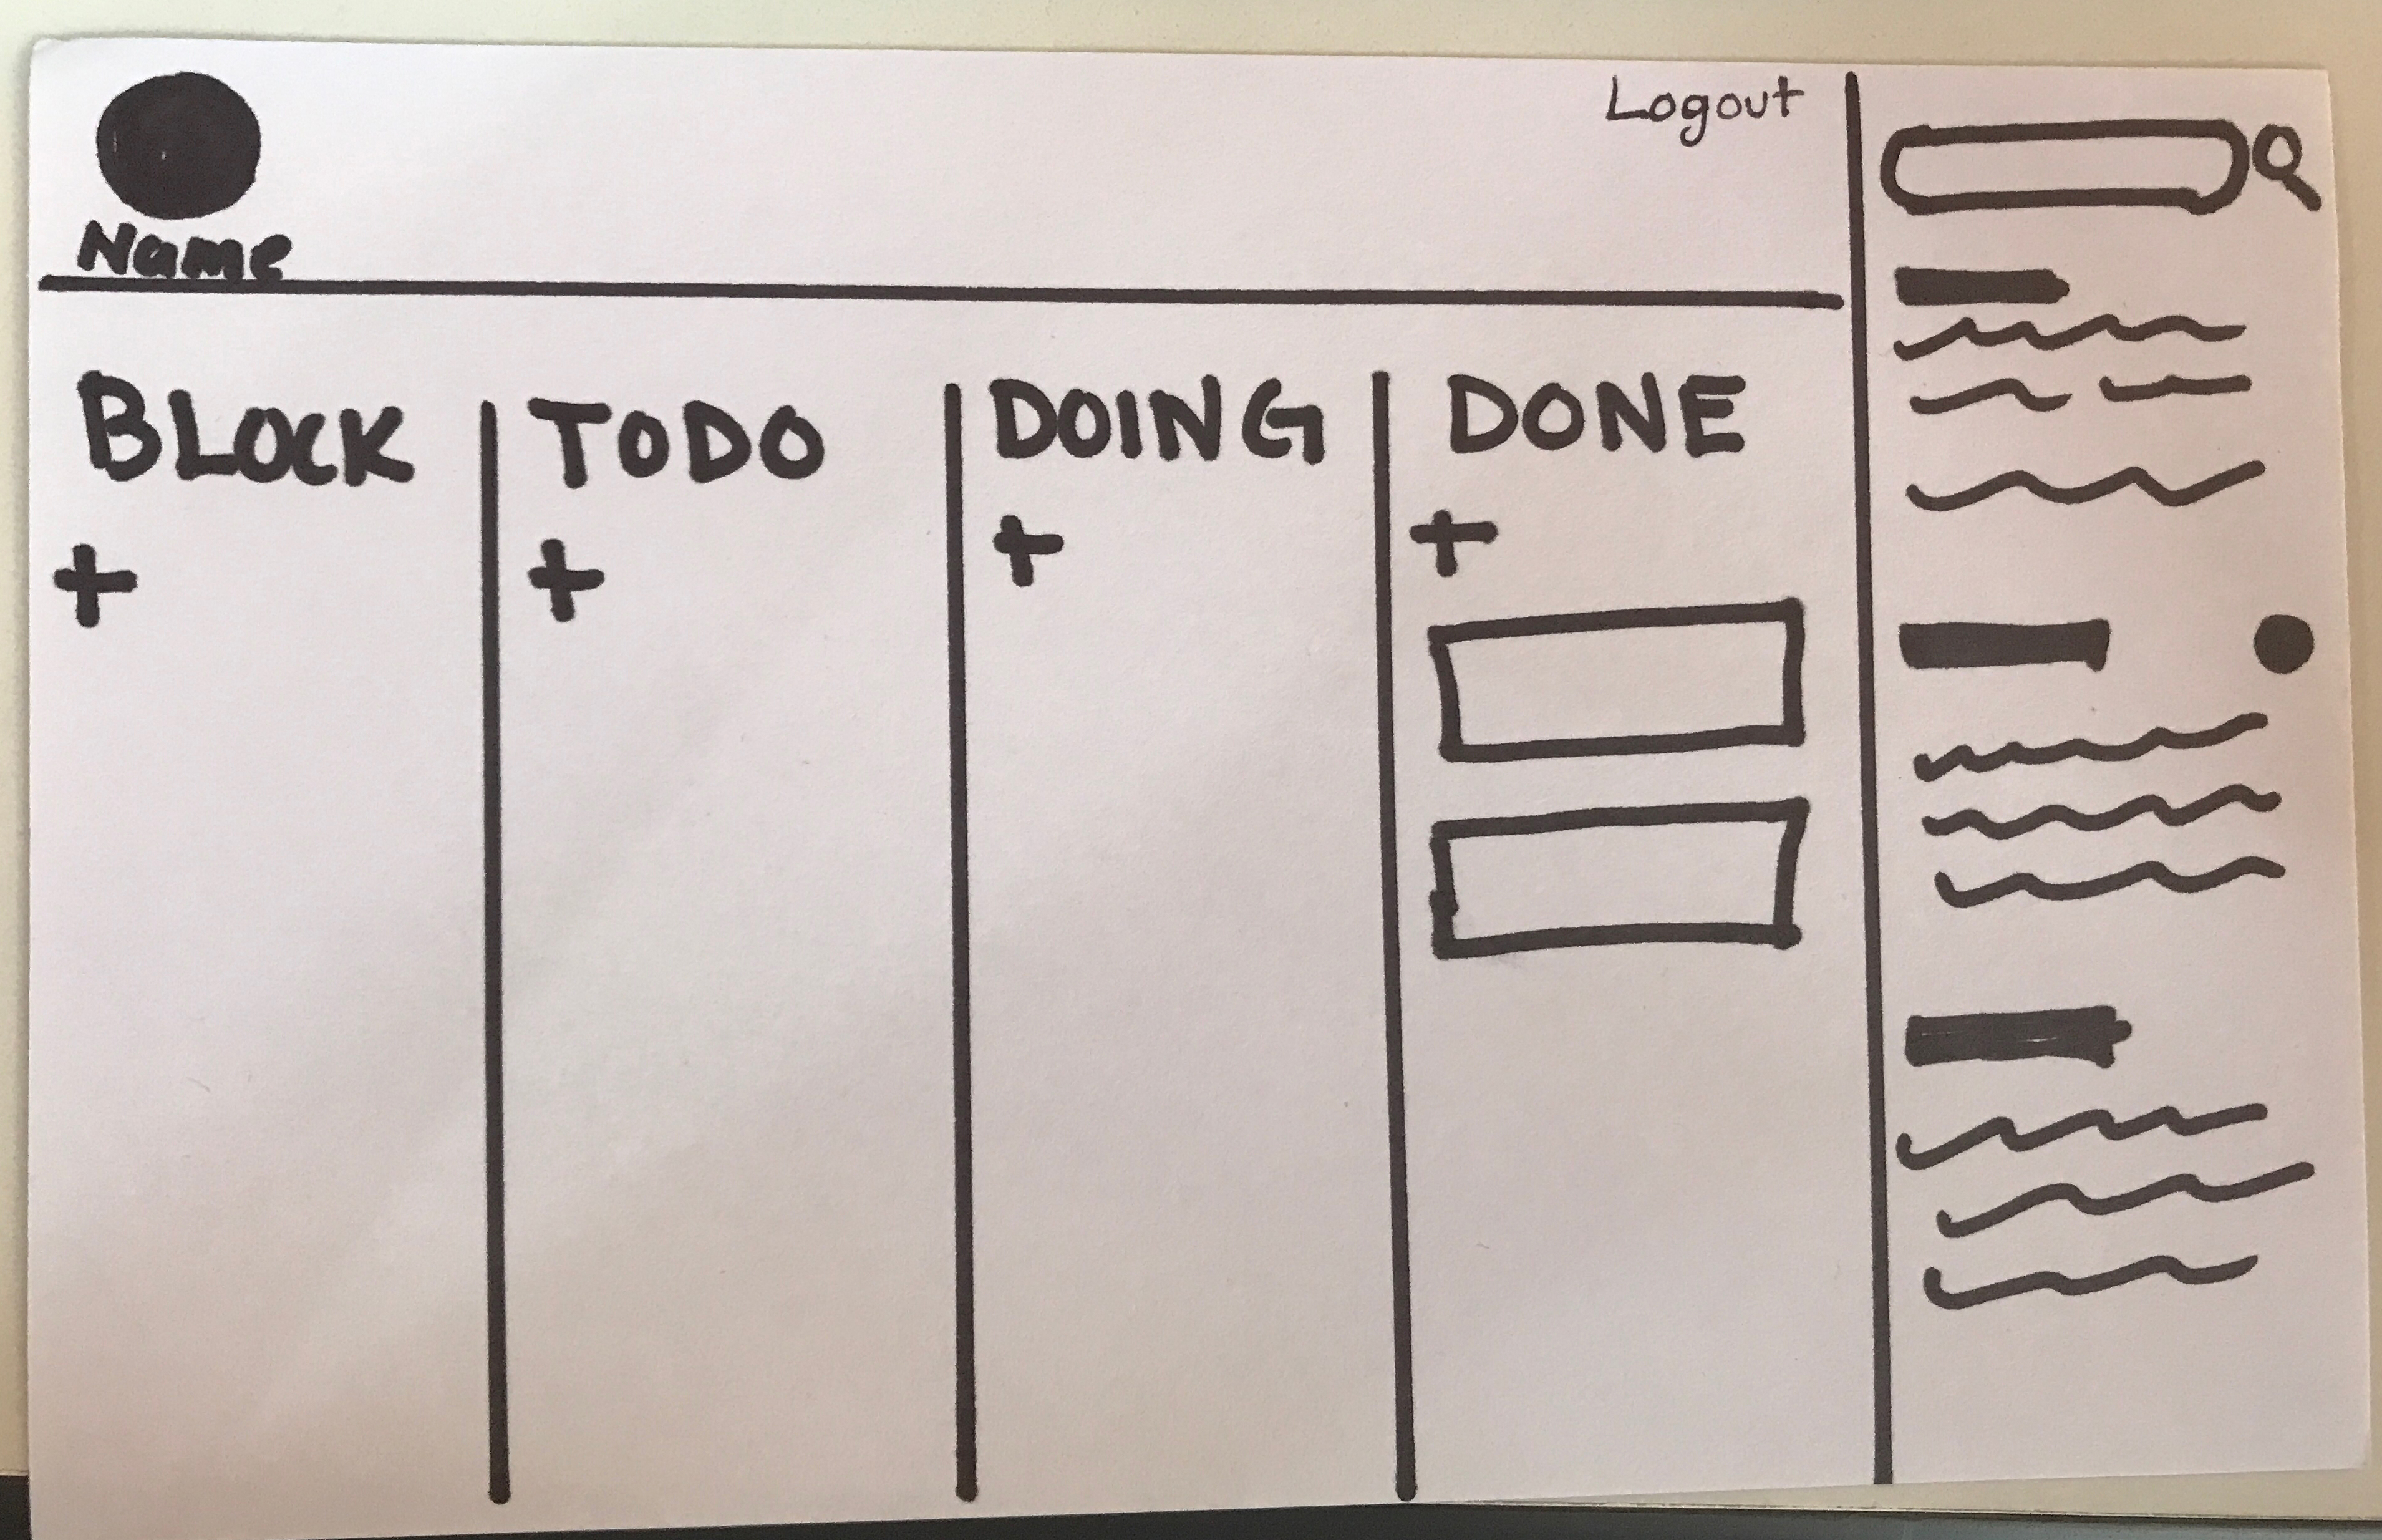 Logout
Name
BLOCK TODO DOING DONE
+ + + +